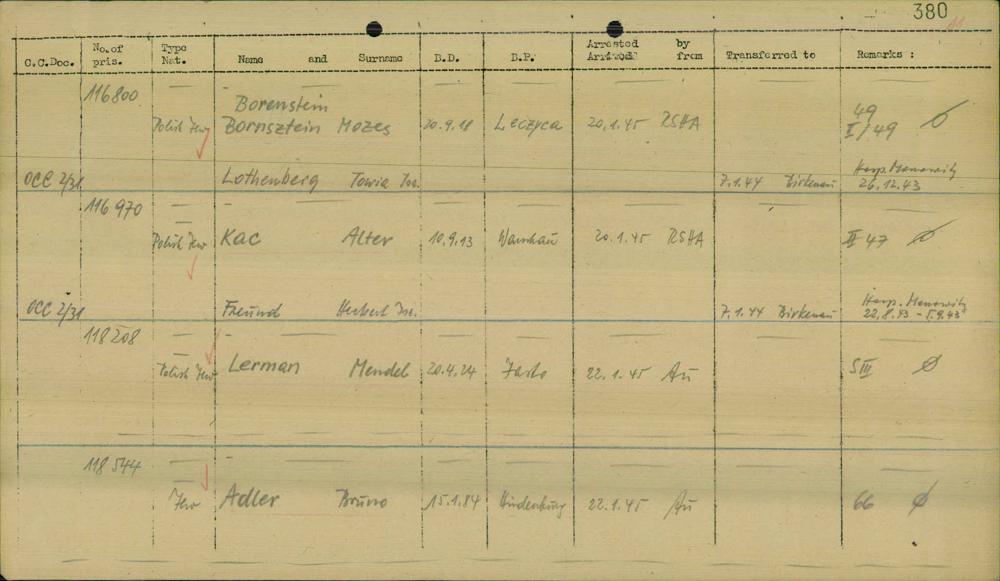 380
C.C.Doc. No.of pris. Type Nat. Name and Surname B.D. B.P. Arrested Arrived by from Transferred to Remarks :
116800
Borenstein
Polish Jew Bornsztein Mozes 20.9.18 Leczyca 20.1.45 RSHA 49 I/49
OCC 2/31 Lothenberg Towia Isr. 7.1.44 Birkenau Hosp. Monowitz 26.12.43
116970
Polish Jew Kac Alter 10.9.13 Warschau 20.1.45 RSHA II 47
OCC 2/31 Freund Herbert Isr. 7.1.44 Birkenau Hosp. Monowitz 22.8.43 - 5.9.43
118208
Polish Jew Lerman Mendel 20.4.24 22.1.45 Au SIII
118544
Jew Adler Bruno 15.1.84 Hindenburg 22.1.45 Au 66